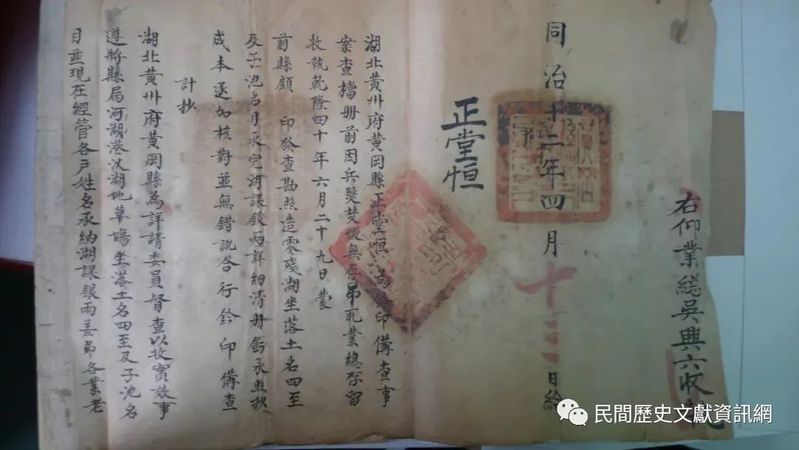 右仰業總吳興六收執
同治十二年四月十三日給
正堂恒
湖北黃州府黃岡縣正堂恒 為鈐印備查事
案查檔册前因兵燹焚燬無存吊取業總存留
收執乾隆四十年六月二十九日蒙
前縣顧 印發查勘照造零殘湖坐落土名四至
及子池名目承完湖課銀兩詳細清册飭承照抄
成本逐加核對並無錯訛合行鈐印備查
計抄
湖北黃州府黃岡縣為詳請委員督查以收實效事
遵將縣局河湖港汊湖地草塲坐落土名四至及子池名
目並現在經管各戶姓名承納湖課銀兩 各業老
民間歷史文獻資訊網